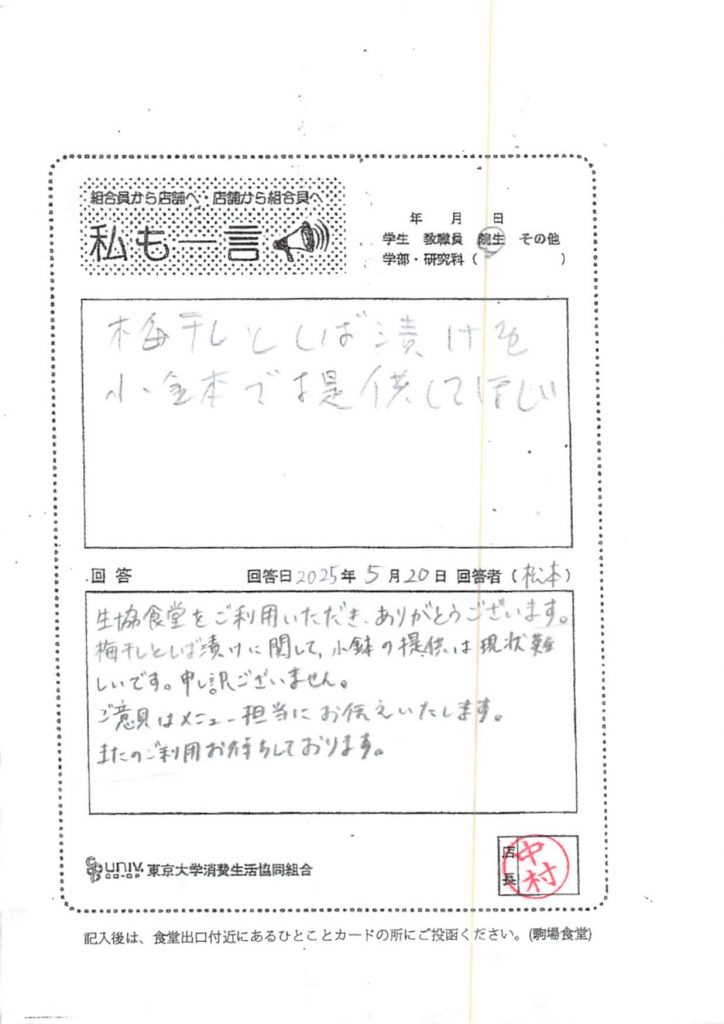 組合員から店舗へ・店舗から組合員へ
私も一言
年 月 日
学生 教職員 院生 その他
学部・研究科 ( )
梅干しとしば漬けを
小鉢で提供してほしい
回答 回答日2025年 5月20日 回答者 (松本)
生協食堂をご利用いただき、ありがとうございます。
梅干しとしば漬けに関して、小鉢の提供は現状難
しいです。申し訳ございません。
ご意見はメニュー担当にお伝えいたします。
またのご利用お待ちしております。
UNIV. CO-OP 東京大学消費生活協同組合
店長
中村
記入後は、食堂出口付近にあるひとことカードの所にご投函ください。(駒場食堂)